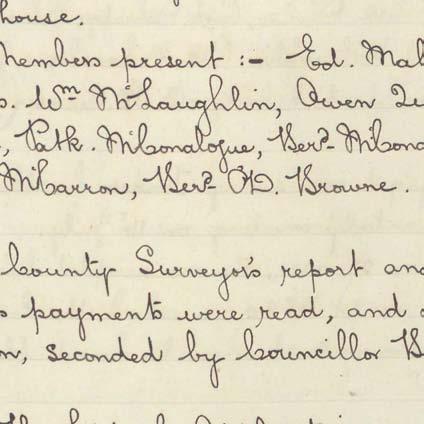 house.
Members present :- Ed. Mal
s. Wm McLaughlin, Owen
, Patk. McGonalogue, Berd. McGona
McCarron, Berd O'D. Browne.
County Surveyor's report and
s payments were read, and
n, seconded by Councillor B